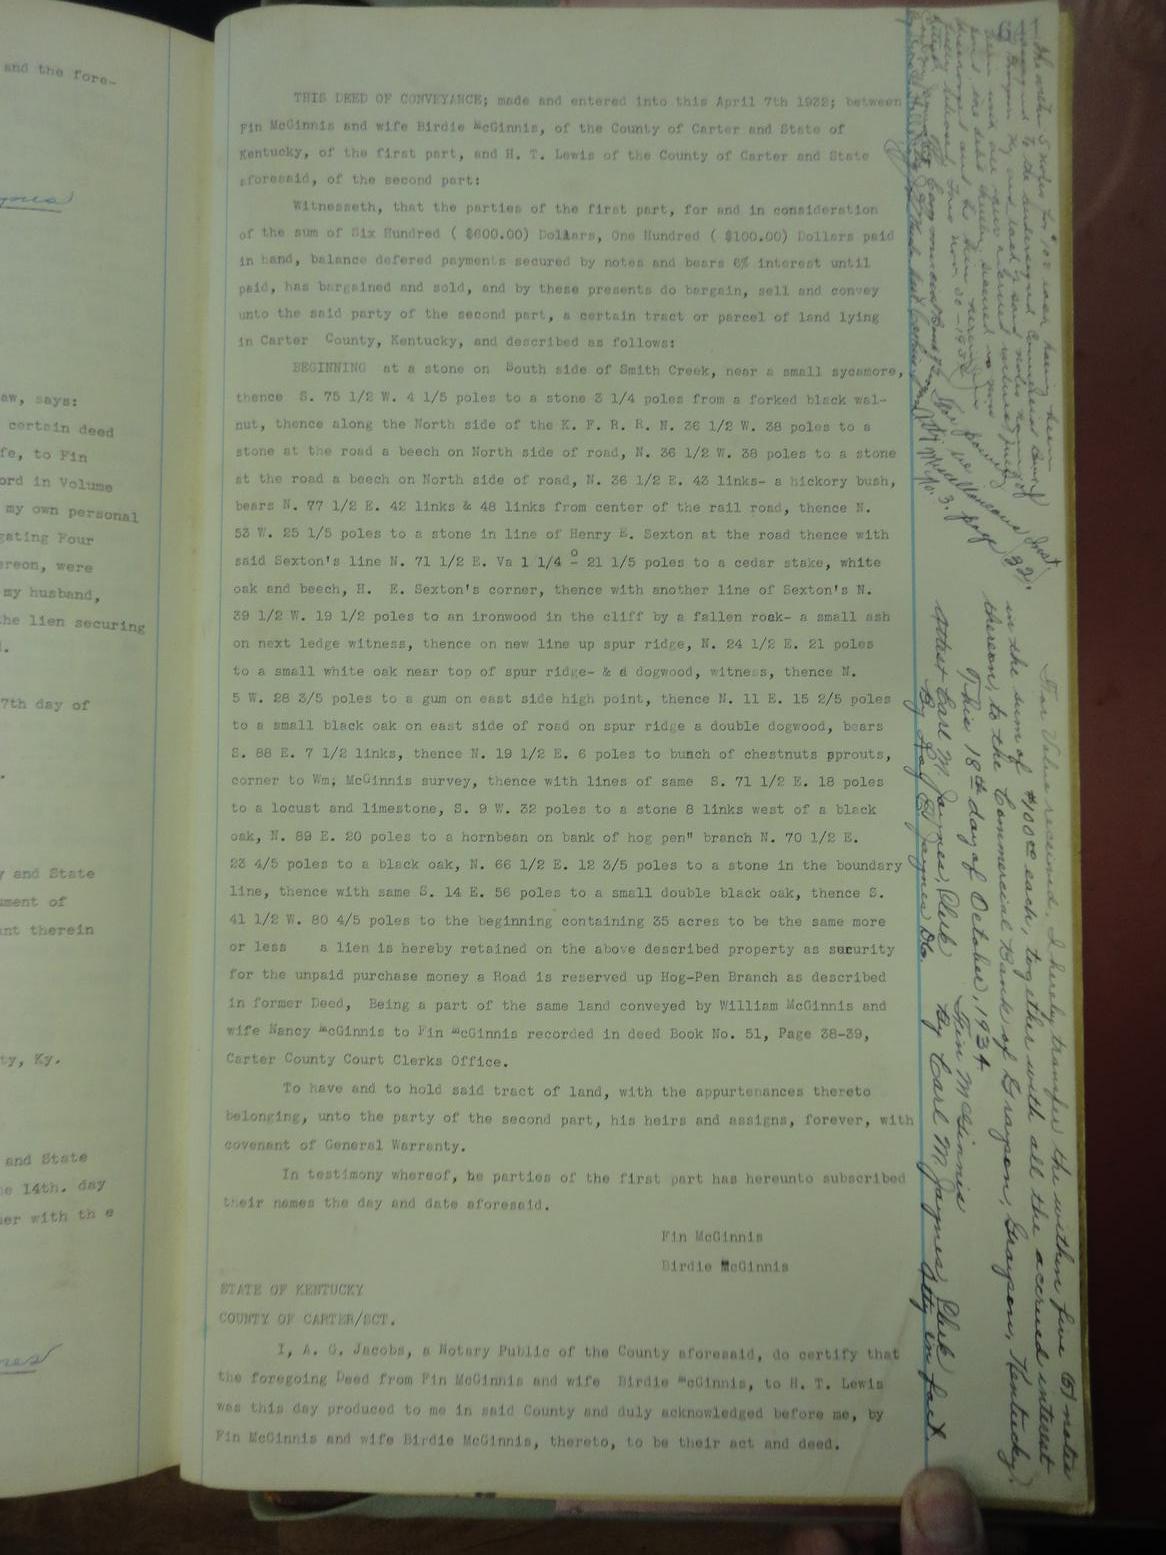 and the fore-
aw, says:
certain deed
fe, to Fin
ord in Volume
my own personal
gating Four
ereon, were
my husband,
the lien securing
7th day of
y and State
ument of
ant therein
ty, Ky.
and State
he 14th. day
her with th e
THIS DEED OF CONVEYANCE; made and entered into this April 7th 1932; between
Fin McGinnis and wife Birdie McGinnis, of the County of Carter and State of
Kentucky, of the first part, and H. T. Lewis of the County of Carter and State
aforesaid, of the second part:
Witnesseth, that the parties of the first part, for and in consideration
of the sum of Six Hundred ( $600.00) Dollars, One Hundred ( $100.00) Dollars paid
in hand, balance defered payments secured by notes and bears 6% interest until
paid, has bargained and sold, and by these presents do bargain, sell and convey
unto the said party of the second part, a certain tract or parcel of land lying
in Carter County, Kentucky, and described as follows:
BEGINNING at a stone on South side of Smith Creek, near a small sycamore,
thence S. 75 1/2 W. 4 1/5 poles to a stone 3 1/4 poles from a forked black wal-
nut, thence along the North side of the K. F. R. R. N. 36 1/2 W. 38 poles to a
stone at the road a beech on North side of road, N. 36 1/2 W. 38 poles to a stone
at the road a beech on North side of road, N. 36 1/2 E. 43 links- a hickory bush,
bears N. 77 1/2 E. 42 links & 48 links from center of the rail road, thence N.
53 W. 25 1/5 poles to a stone in line of Henry E. Sexton at the road thence with
said Sexton's line N. 71 1/2 E. Va 1 1/4 ° - 21 1/5 poles to a cedar stake, white
oak and beech, H. E. Sexton's corner, thence with another line of Sexton's N.
39 1/2 W. 19 1/2 poles to an ironwood in the cliff by a fallen rock- a small ash
on next ledge witness, thence on new line up spur ridge, N. 24 1/2 E. 21 poles
to a small white oak near top of spur ridge- & a dogwood, witness, thence N.
5 W. 28 3/5 poles to a gum on east side high point, thence N. 11 E. 15 2/5 poles
to a small black oak on east side of road on spur ridge a double dogwood, bears
S. 88 E. 7 1/2 links, thence N. 19 1/2 E. 6 poles to bunch of chestnuts sprouts,
corner to Wm; McGinnis survey, thence with lines of same S. 71 1/2 E. 18 poles
to a locust and limestone, S. 9 W. 32 poles to a stone 8 links west of a black
oak, N. 89 E. 20 poles to a hornbean on bank of hog pen" branch N. 70 1/2 E.
23 4/5 poles to a black oak, N. 66 1/2 E. 12 3/5 poles to a stone in the boundary
line, thence with same S. 14 E. 56 poles to a small double black oak, thence S.
41 1/2 W. 80 4/5 poles to the beginning containing 35 acres to be the same more
or less a lien is hereby retained on the above described property as security
for the unpaid purchase money a Road is reserved up Hog-Pen Branch as described
in former Deed, Being a part of the same land conveyed by William McGinnis and
wife Nancy McGinnis to Fin McGinnis recorded in deed Book No. 51, Page 38-39,
Carter County Court Clerks Office.
To have and to hold said tract of land, with the appurtenances thereto
belonging, unto the party of the second part, his heirs and assigns, forever, with
covenant of General Warranty.
In testimony whereof, he parties of the first part has hereunto subscribed
their names the day and date aforesaid.
Fin McGinnis
Birdie McGinnis
STATE OF KENTUCKY
COUNTY OF CARTER/SCT.
I, A. G. Jacobs, a Notary Public of the County aforesaid, do certify that
the foregoing Deed from Fin McGinnis and wife Birdie McGinnis, to H. T. Lewis
was this day produced to me in said County and duly acknowledged before me, by
Fin McGinnis and wife Birdie McGinnis, thereto, to be their act and deed.
The within 5 notes for $100 each having been
assigned to the undersigned Commercial Bank of
Grayson Ky and
For power
see Miscellaneous Inst.
No. 3, page 32.
For Value received, I hereby transfer the within five (5) notes
in the sum of $100.00 each, together with all the accrued interest
thereon, to the Commercial Bank of Grayson, Grayson, Kentucky.
This 18th day of October, 1934.
Fin McGinnis
Attest Carl M. Jaynes, Clerk By Carl M. Jaynes, Clerk
By Fay E. Jaynes D.C. Atty in fact.